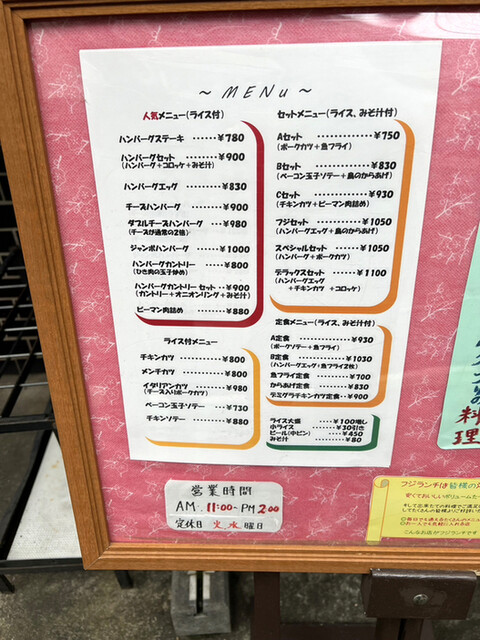 ～ MENu ～
人気メニュー(ライス付)
ハンバーグステーキ ……¥780
ハンバーグセット ……¥900
(ハンバーグ＋コロッケ＋みそ汁)
ハンバーグエッグ ……¥830
チーズハンバーグ ……¥900
ダブルチーズハンバーグ …¥980
(チーズが通常の2倍)
ジャンボハンバーグ ……¥1000
ハンバーグカントリー ……¥800
(ひき肉の玉子炒め)
ハンバーグカントリー セット‥¥900
(カントリー＋オニオンリング＋みそ汁)
ピーマン肉詰め ……¥880
ライス付メニュー
チキンカツ ……¥800
メンチカツ ……¥800
イタリアンカツ ……¥980
(チーズ入りポークカツ)
ベーコン玉子ソテー …¥730
チキンソテー ……¥880
セットメニュー(ライス、みそ汁付)
Aセット ……¥750
(ポークカツ＋魚フライ)
Bセット ……¥830
(ベーコン玉子ソテー＋鳥のからあげ)
Cセット ……¥930
(チキンカツ＋ピーマン肉詰め)
フジセット ……¥1050
(ハンバーグエッグ＋鳥のからあげ)
スペシャルセット ……¥1050
(ハンバーグ＋ポークカツ)
デラックスセット ……¥1100
(ハンバーグエッグ
＋チキンカツ ＋コロッケ)
定食メニュー(ライス、みそ汁付)
A定食 ……¥930
(ポークソテー＋魚フライ)
B定食 ……¥1030
(ハンバーグエッグ・魚フライ2枚)
魚フライ定食 ……¥700
からあげ定食 ……¥830
デミグラチキンカツ定食‥¥900
ライス大盛 ……¥100増し
小ライス ……¥30引き
ビール(中ビン) ……¥450
みそ汁 ……¥80
営業時間
AM. 11:00〜PM 2:00
定休日 火、水曜日
フジランチは皆様の
安くておいしいボリュームた
こんなお店がフジランチです
料
理